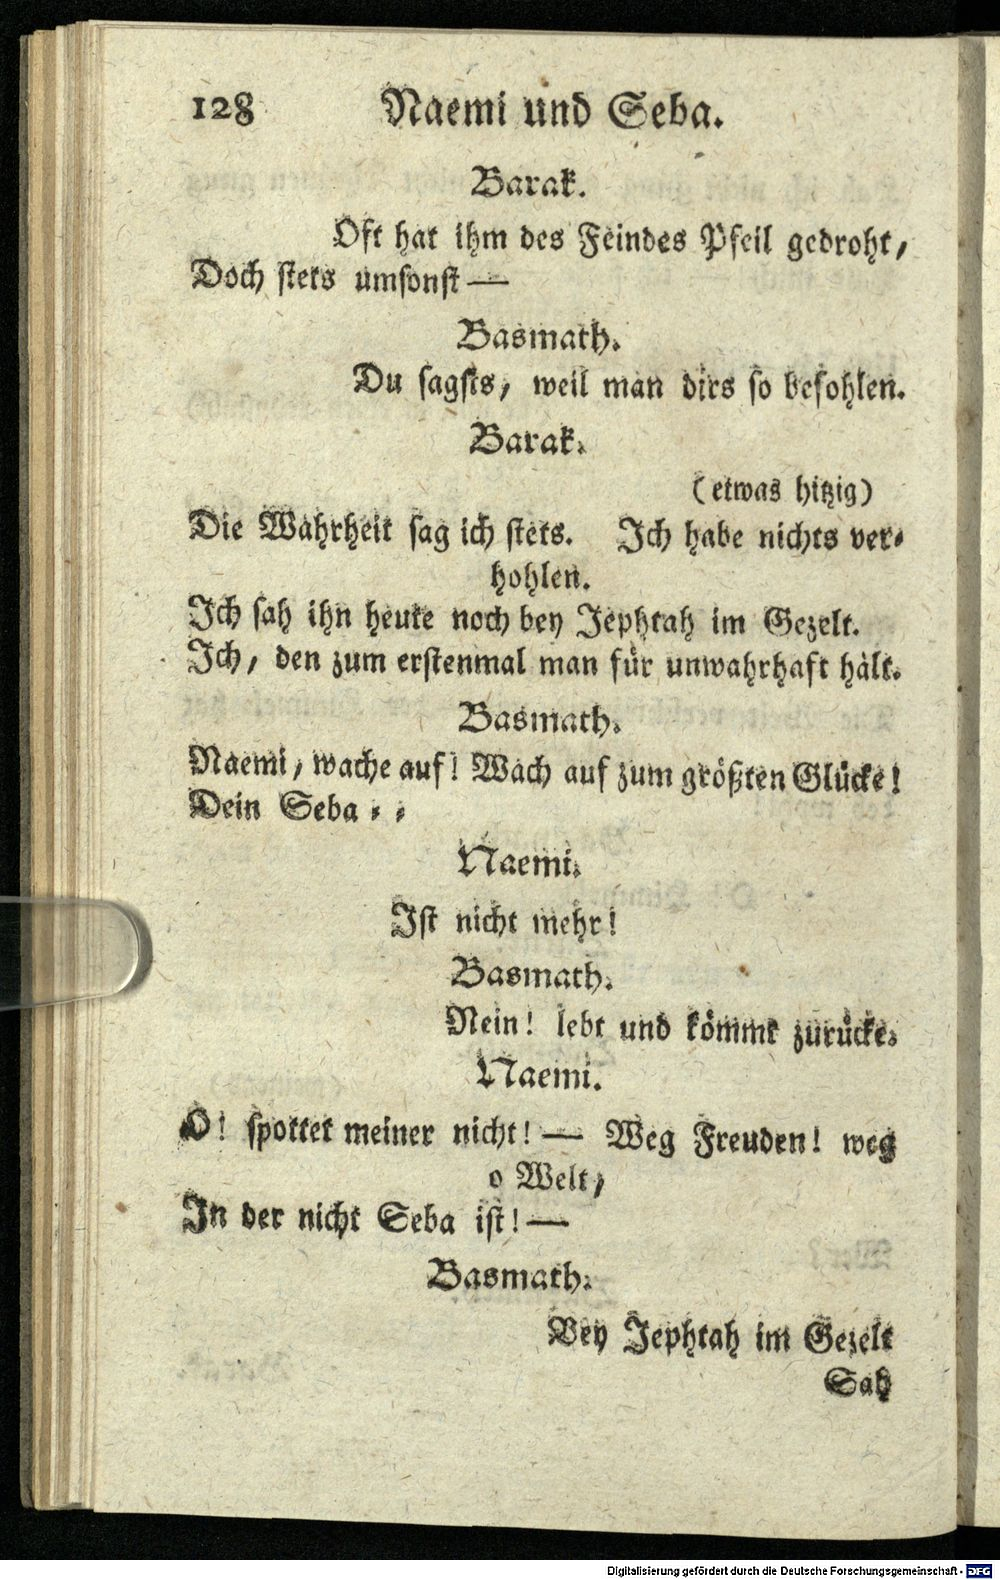 128 Naemi und Seba.
Barak.
Oft hat ihm des Feindes Pfeil gedroht,
Doch stets umsonst —
Basmath.
Du sagsts, weil man dirs so befohlen.
Barak.
(etwas hitzig)
Die Wahrheit sag ich stets. Ich habe nichts ver-
hohlen.
Ich sah ihn heute noch bey Jephtah im Gezelt.
Ich, den zum erstenmal man für unwahrhaft hält.
Basmath.
Naemi, wache auf! Wach auf zum größten Glücke!
Dein Seba - -
Naemi.
Ist nicht mehr!
Basmath.
Nein! lebt und kömmt zurücke.
Naemi.
O! spottet meiner nicht! — Weg Freuden! weg
o Welt,
In der nicht Seba ist! —
Basmath.
Bey Jephtah im Gezelt
Sah
Digitalisierung gefördert durch die Deutsche Forschungsgemeinschaft - DFG